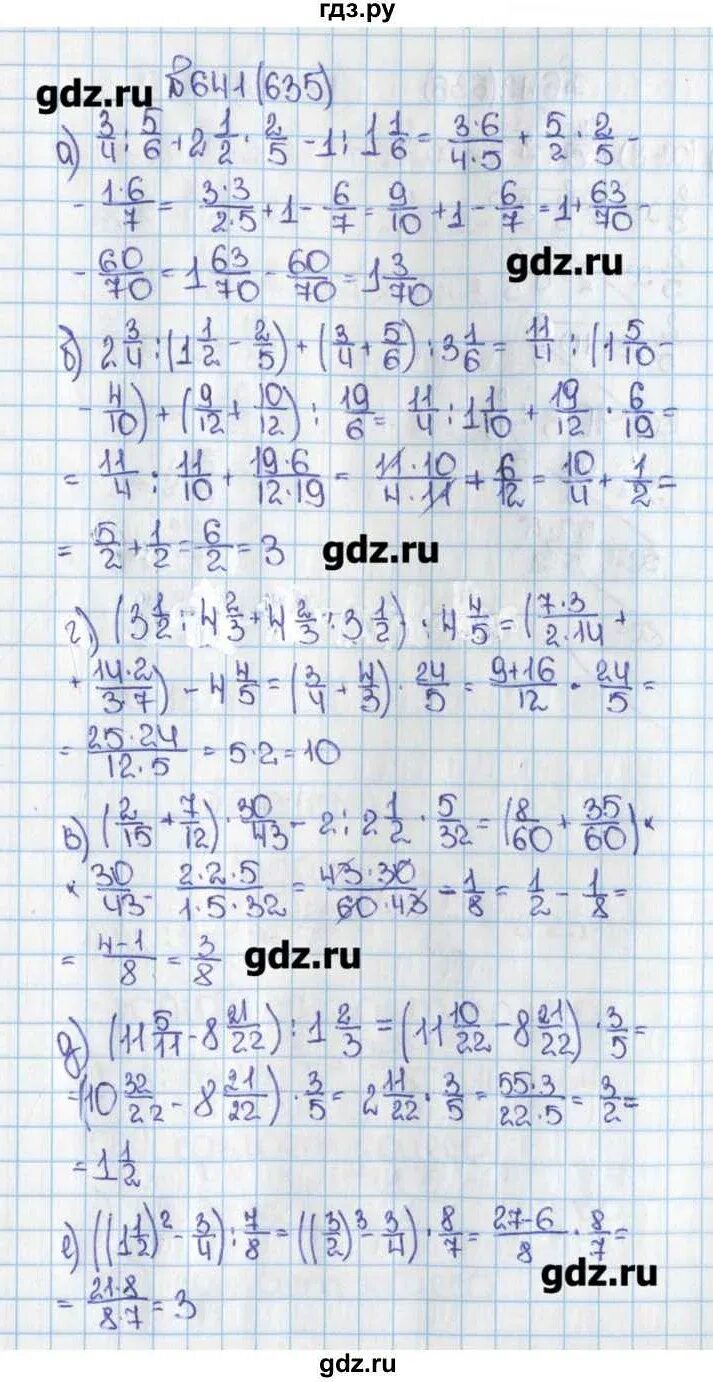 гдз.ру
№641 (635)
gdz.ru
а) 3/4 : 5/6 + 2 1/2 · 2/5 - 1 : 1 1/6 = 3·6/4·5 + 5/2 · 2/5 -
- 1·6/7 = 3·3/2·5 + 1 - 6/7 = 9/10 + 1 - 6/7 = 1 + 63/70 -
- 60/70 = 1 63/70 - 60/70 = 1 3/70
gdz.ru
б) 2 3/4 : (1 1/2 - 2/5) + (3/4 + 5/6) : 3 1/6 = 11/4 : (1 5/10 -
- 4/10) + (9/12 + 10/12) : 19/6 = 11/4 : 1 1/10 + 19/12 · 6/19 =
= 11/4 : 11/10 + 19·6/12·19 = 11·10/4·11 + 6/12 = 10/4 + 1/2 =
= 5/2 + 1/2 = 6/2 = 3
gdz.ru
г) (3 1/2 : 4 2/3 + 4 2/3 : 3 1/2) · 4 4/5 = (7·3/2·14 +
+ 14·2/3·7) - 4 4/5 = (3/4 + 4/3) · 24/5 = 9+16/12 · 24/5 =
= 25·24/12·5 = 5·2 = 10
в) (2/15 + 7/12) · 30/43 - 2 : 2 1/2 · 5/32 = (8/60 + 35/60) ×
× 30/43 - 2·2·5/1·5·32 = 43·30/60·43 - 1/8 = 1/2 - 1/8 =
= 4-1/8 = 3/8
gdz.ru
д) (11 5/11 - 8 21/22) : 1 2/3 = (11 10/22 - 8 21/22) · 3/5 =
= (10 32/22 - 8 21/22) · 3/5 = 2 11/22 · 3/5 = 55·3/22·5 = 3/2 =
= 1 1/2
е) ((1 1/2)² - 3/4) : 7/8 = ((3/2)³ - 3/4) · 8/7 = 27-6/8 · 8/7 =
= 21·8/8·7 = 3
gdz.ru
gdz.ru